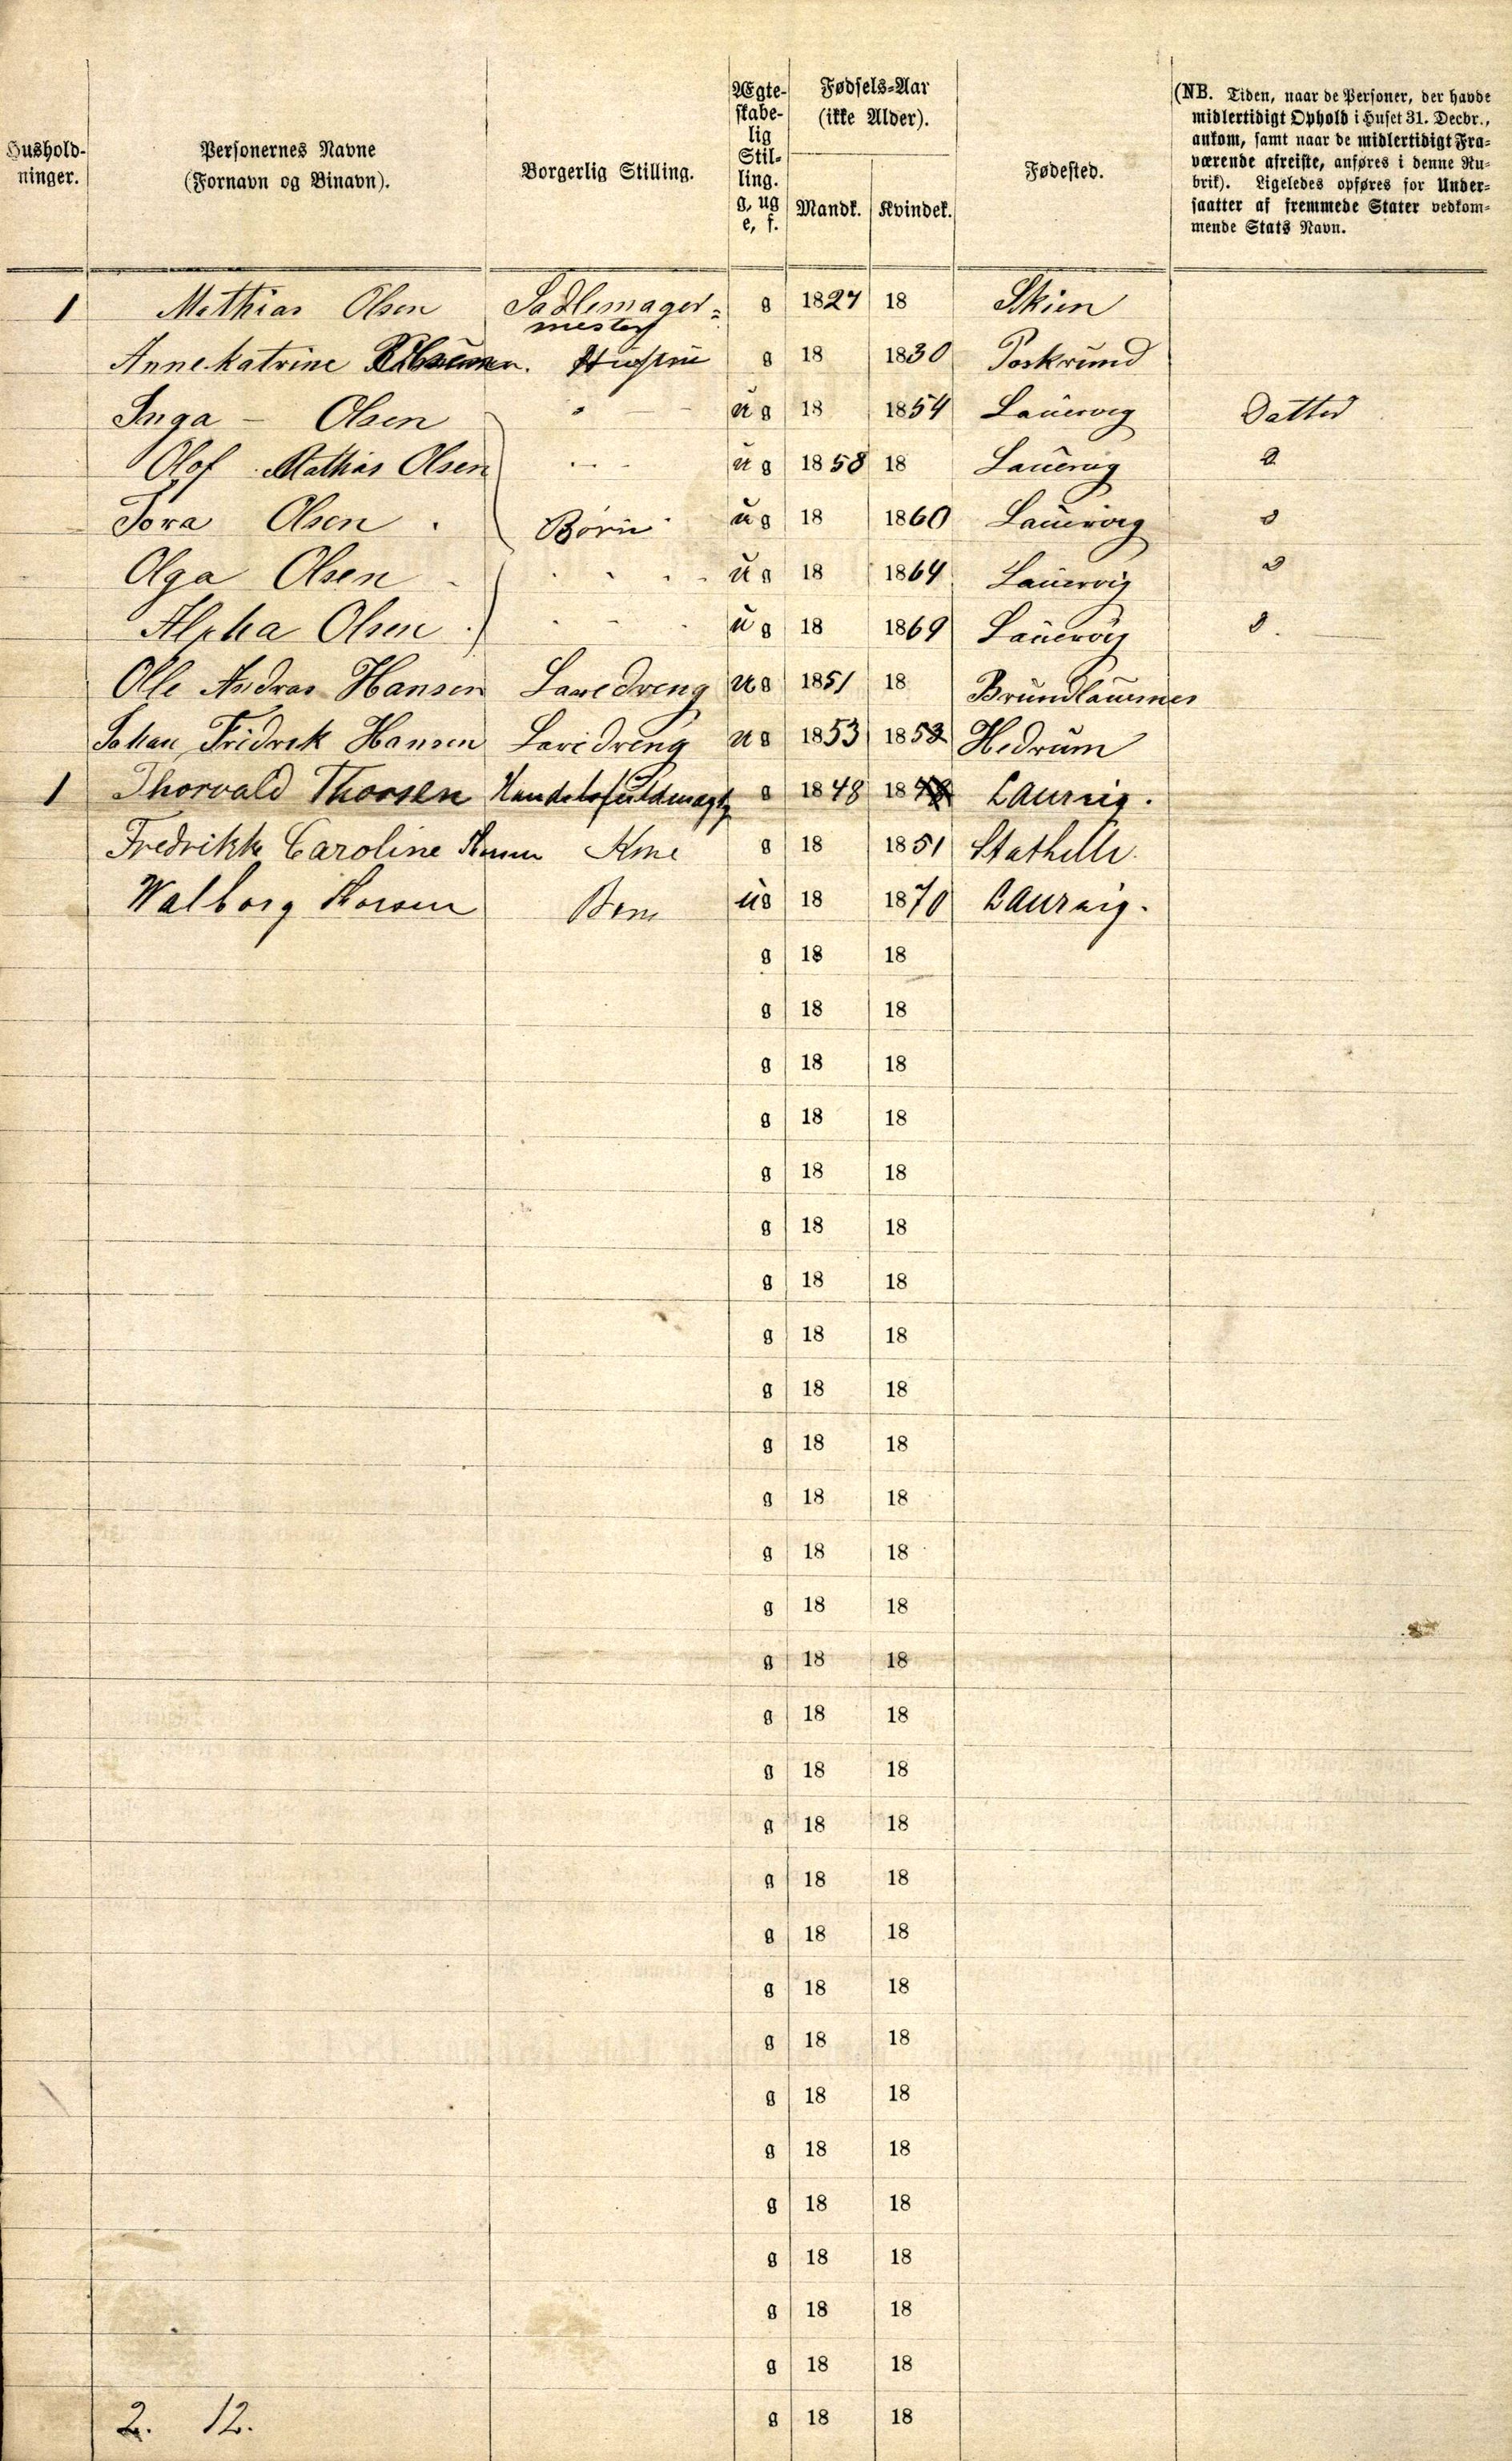 Hushold-
ninger.
Personernes Navne
(Fornavn og Binavn).
Borgerlig Stilling.
Ægte-
skabe-
lig
Stil-
ling.
g, ug
e, f.
Fødsels-Aar
(ikke Alder).
Mandk. Kvindek.
Fødested.
(NB. Tiden, naar de Personer, der havde
midlertidigt Ophold i Huset 31. Decbr.,
ankom, samt naar de midlertidigt Fra-
værende afreiste, anføres i denne Ru-
brik). Ligeledes opføres for Under-
saatter af fremmede Stater vedkom-
mende Stats Navn.
1 Mathias Olsen Sadlemager= g 1827 18 Skien
mester
Anne Katrine Hustru g 18 1830 Poskrund
Inga - Olsen " ug 18 1854 Laurvig Datter
Olof Mathias Olsen ug 1858 18 Laurvig
Tora Olsen Børn ug 18 1860 Laurvig
Olga Olsen ug 18 1864 Laurvig
Alpha Olsen ug 18 1869 Laurvig
Olle Andras Hansen Læredreng ug 1851 18 Brundlaurnes
Johan Fridrek Hansen Læredreng ug 1853 1853 Hedrum
1 Thorvald Thorsen Handelsfuldmægtg g 1848 18 Laurvig.
Fredrikke Caroline Thorsen Kone g 18 1851 Stathelle.
Walborg Thorsen Barn ug 18 1870 Laurvig.
g 18 18
g 18 18
g 18 18
g 18 18
g 18 18
g 18 18
g 18 18
g 18 18
g 18 18
g 18 18
g 18 18
g 18 18
g 18 18
g 18 18
g 18 18
g 18 18
g 18 18
g 18 18
g 18 18
g 18 18
g 18 18
g 18 18
g 18 18
g 18 18
g 18 18
g 18 18
g 18 18
2. 12. g 18 18